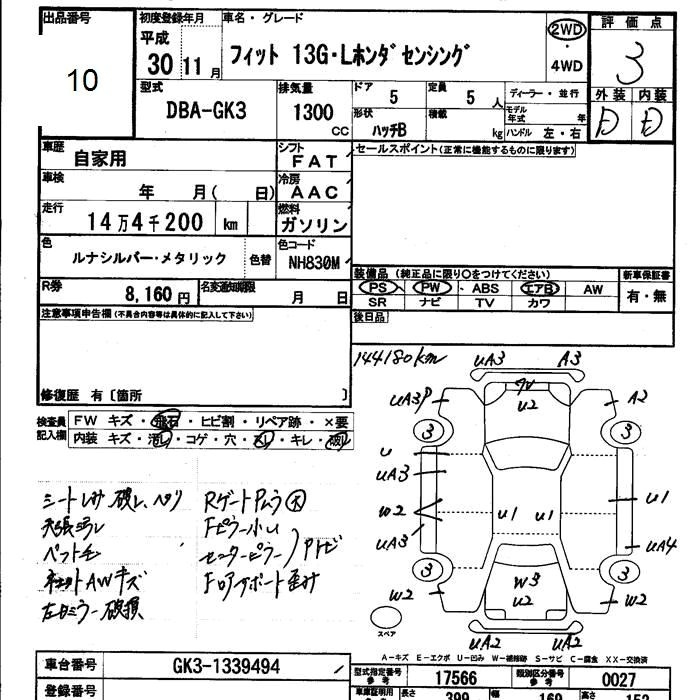 出品番号
10
初度登録年月
平成
30 11 月
車名・グレード
フィット 13G・Lホンダセンシング
2WD
・
4WD
評価点
3
外装 内装
D D
型式
DBA-GK3
排気量
1300
CC
ドア
5
定員
5 人
形状
ハッチB
積載
kg
ディーラー・並行
モデル年式 年
ハンドル 左・右
車歴
自家用
シフト
FAT
車検
年 月( 日)
冷房
AAC
走行
14万4千200 km
燃料
ガソリン
色
ルナシルバー・メタリック
色替
色コード
NH830M
R券
8,160円
名変通知期限
月 日
セールスポイント(正常に機能するものに限ります)
装備品 (純正品に限り○をつけてください)
PS PW ABS エアB AW
SR ナビ TV カワ
新車保証書
有・無
後日品
注意事項申告欄 (不具合内容等は具体的に記入して下さい)
修復歴 有〔箇所 〕
検査員記入欄
FW キズ・飛石・ヒビ割・リペア跡・×要
内装 キズ・汚レ・コゲ・穴・スレ・キレ・破レ
144180km
UA3 A3
UA3P A2
U2
3 3
U
UA3
W2
UA3
U1 U1
U1
UA4
3 3
W3
U2
W2 W2
UA2 UA2
スペア
天張ヨゴレ
左ドミラー破損
A-キズ E-エクボ U-凹み W-補修跡 S-サビ C-腐食 XX-交換済
車台番号
GK3-1339494
型式指定番号
参考
17566
類別区分番号
参考
0027
登録番号
車庫証明用
参考
長さ
399
幅
169
高さ
152